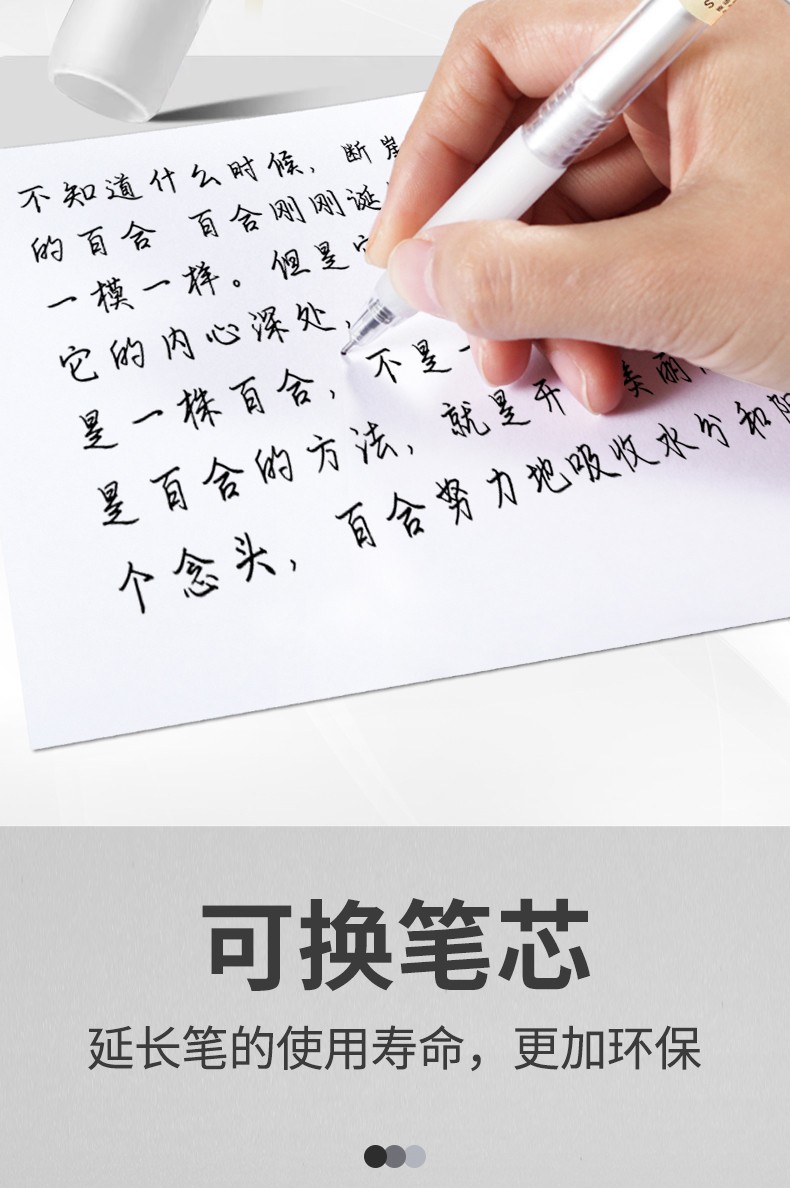 不知道什么时候,断崖
的百合 百合刚刚诞
一模一样。但是它
它的内心深处,
是一株百合,不是一
是百合的方法,就是开 美丽
个念头,百合努力地吸收水分和阳
可换笔芯
延长笔的使用寿命，更加环保